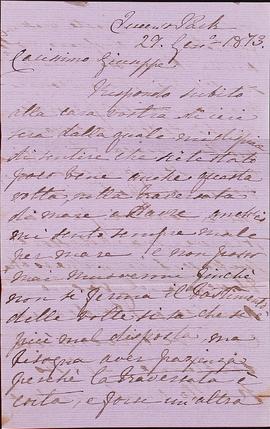 Queen's Park
27. Gen. 1873.
Carissimo Giuseppe
Rispondo subito
alla cara vostra di ieri
sera dalla quale mi dispiace
di sentire che siete stato
poco bene anche questa
volta, nella traversata
di mare a Douvre, anch'io
mi sento sempre male
per mare e non posso
mai muovermi finchè
non si ferma il bastimento
delle volte si sa che si è
più mal disposti, ma
bisogna aver pazienza
perchè la traversata è
corta, e forse un'altra